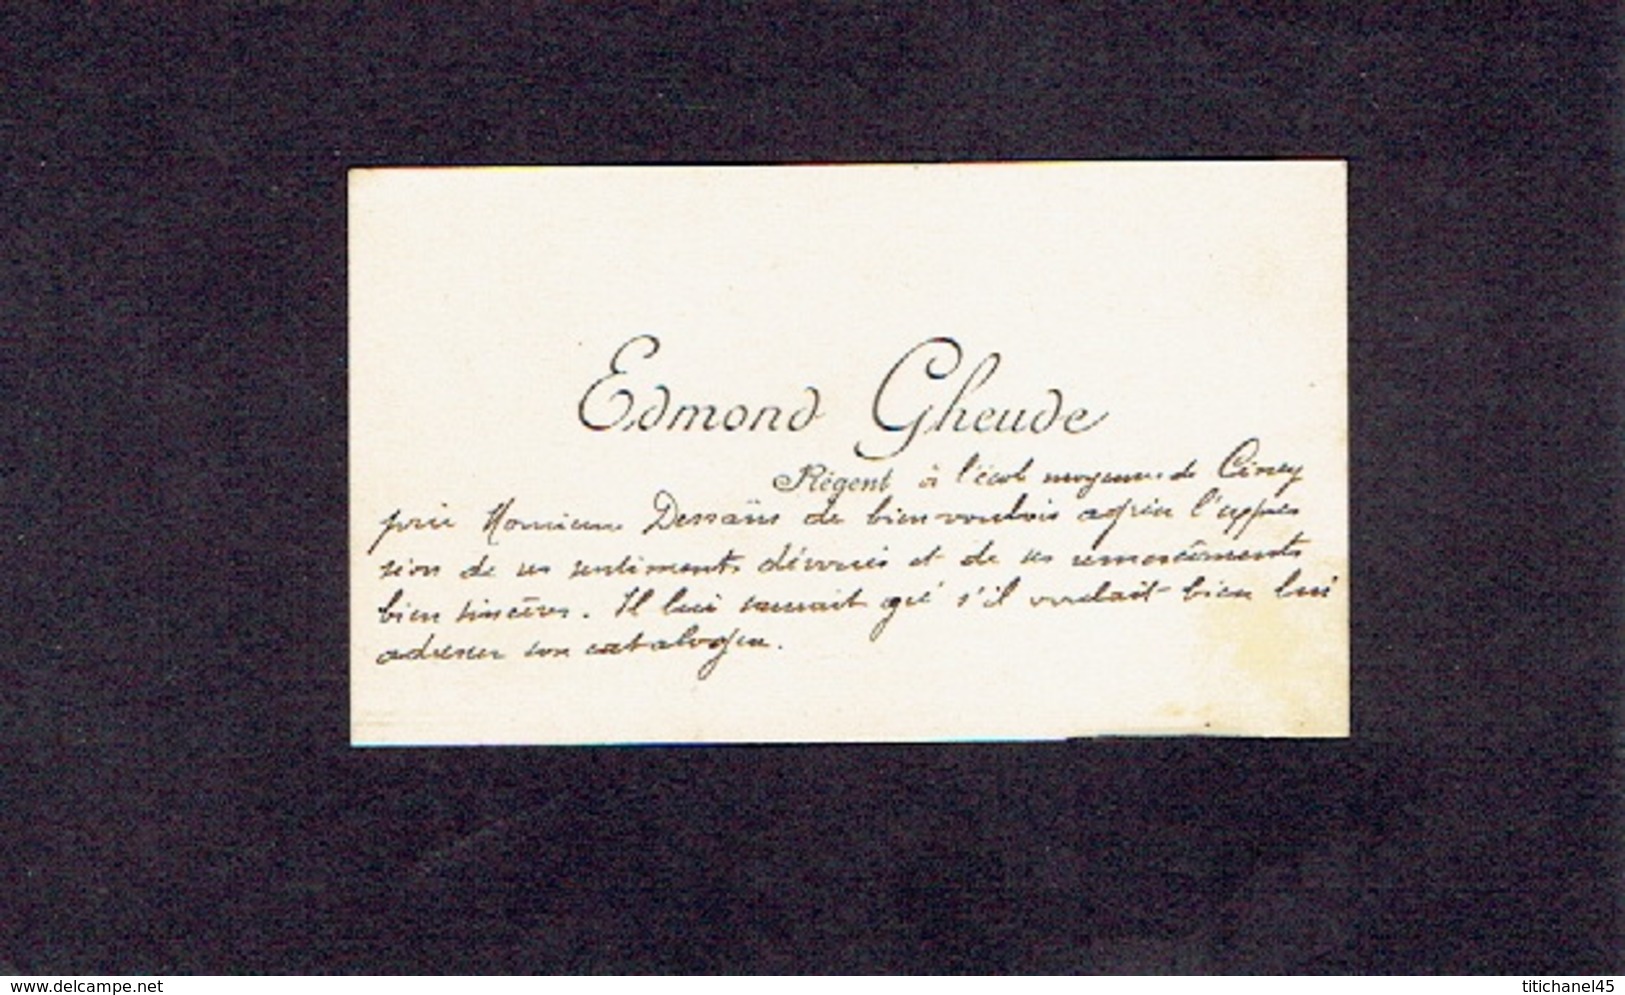 Edmond Gheude
Régent à l'école moyenne de Ciney
prie Monsieur Dessaïns de bien vouloir agréer l'expres
sion de ses sentiments dévoués et de ses remercîments
bien sincères. Il lui saurait gré s'il voulait bien lui
adresser son catalogue.
delcampe.net
titichanel45